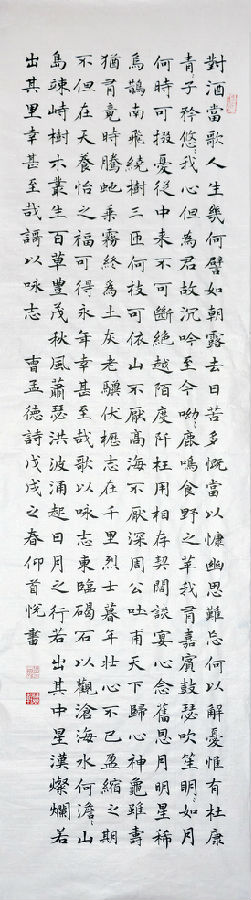 對酒當歌人生幾何譬如朝露去日苦多慨當以慷幽思難忘何以解憂惟有杜康
青々子衿悠々我心但為君故沉吟至今呦々鹿鳴食野之苹我有嘉賓鼓瑟吹笙明々如月
何時可掇憂從中来不可斷絕越陌度阡枉用相存契闊談宴心念舊恩月明星稀
烏鵲南飛繞樹三匝何枝可依山不厭高海不厭深周公吐甫天下歸心神龜雖壽
猶有竟時騰虵乘霧終為土灰老驥伏櫪志在千里烈士暮年壯心不已盈縮之期
不但在天養怡之福可得永年幸甚至哉歌以咏志東臨碣石以觀滄海水何澹々山
島竦峙樹木叢生百草豐茂秋風蕭瑟洪波涌起日月之行若出其中星漢燦爛若
出其里幸甚至哉謌以咏志 曹孟德詩戊戌之春仰首悅書